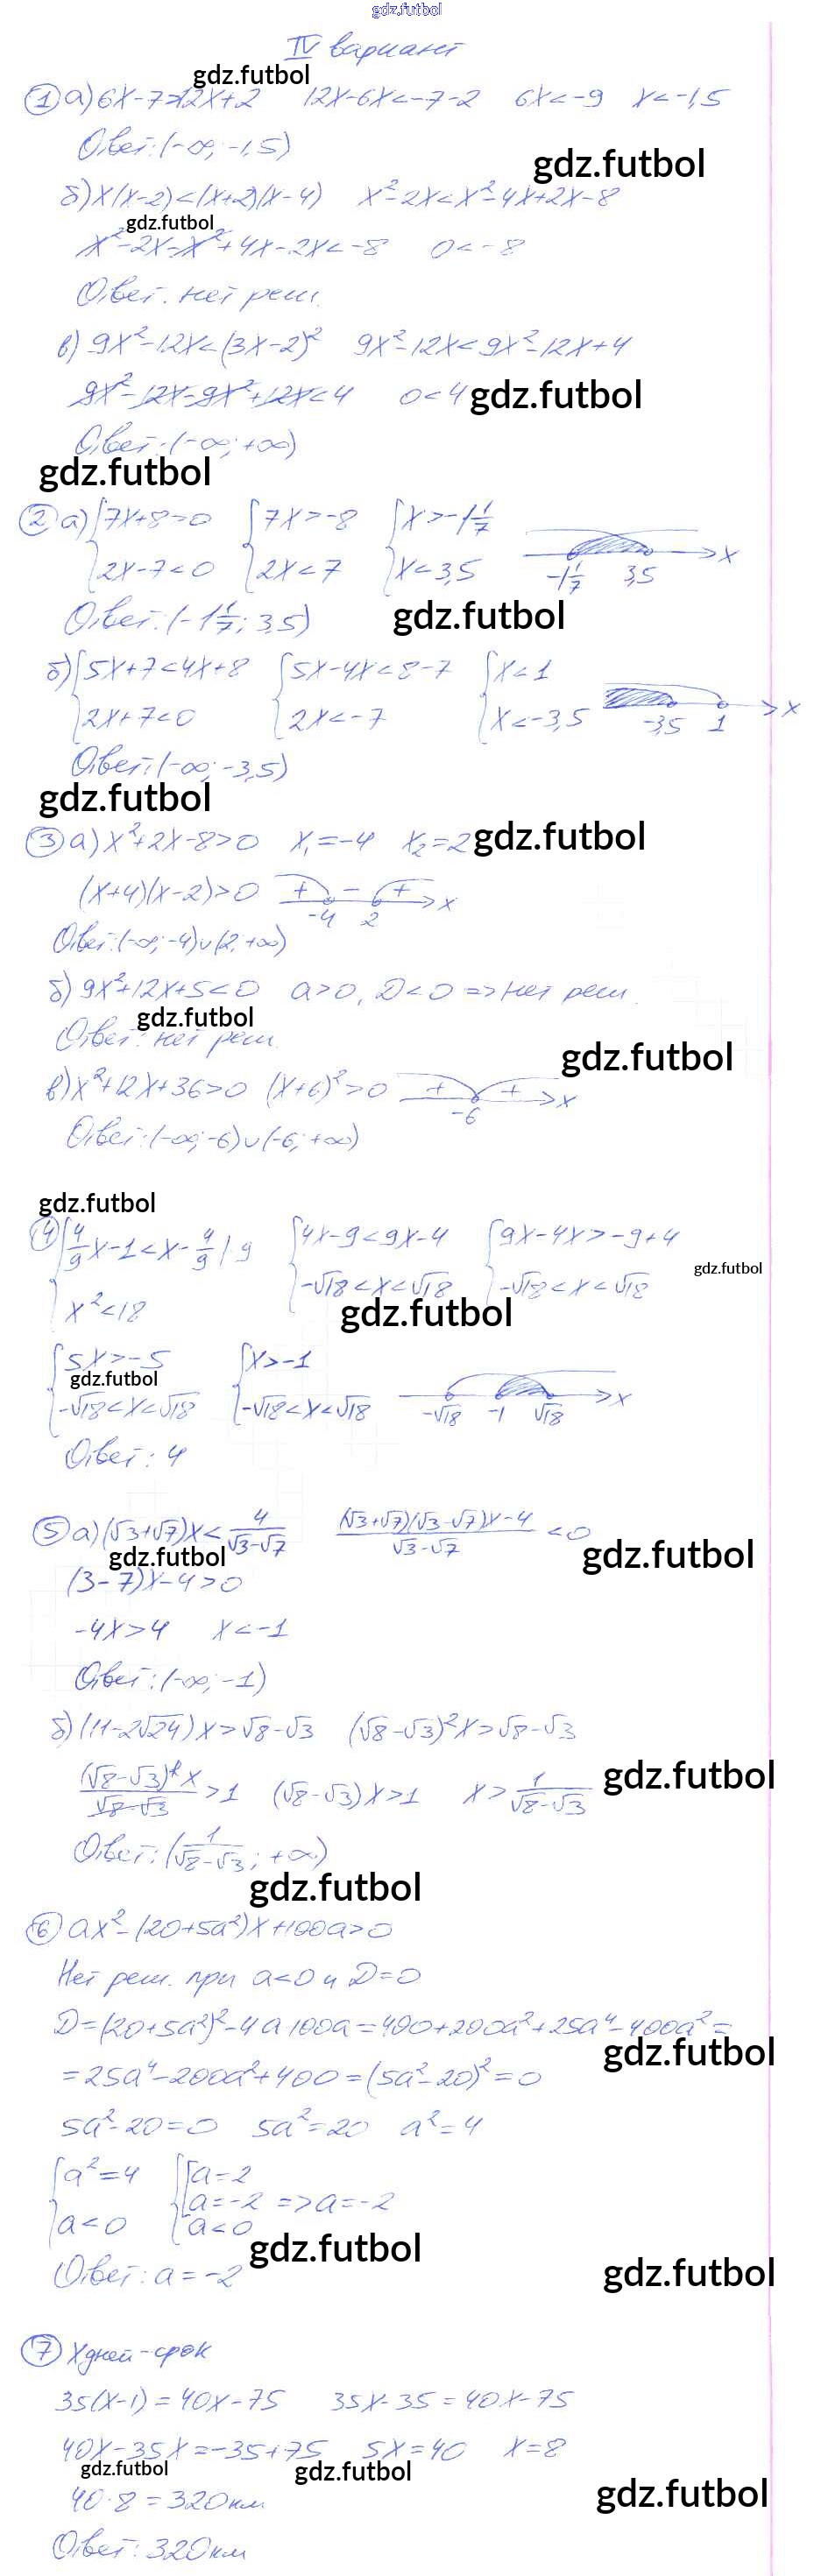 gdz.futbol
IV вариант
gdz.futbol
① а) 6x-7>12x+2 12x-6x<-7-2 6x<-9 x<-1,5
Ответ: (-∞; -1,5)
gdz.futbol
б) x(x-2)<(x+2)(x-4) x²-2x<x²-4x+2x-8
gdz.futbol
x²-2x-x²+4x-2x<-8 0<-8
Ответ: нет реш.
в) 9x²-12x<(3x-2)² 9x²-12x<9x²-12x+4
9x²-12x-9x²+12x<4 0<4 gdz.futbol
Ответ: (-∞; +∞)
gdz.futbol
② а) {7x+8>0 {7x>-8 {x>-1 1/7
2x-7<0 2x<7 x<3,5 -1 1/7 3,5 x
Ответ: (-1 1/7; 3,5) gdz.futbol
б) {5x+7<4x+8 {5x-4x<8-7 {x<1
2x+7<0 2x<-7 x<-3,5 -3,5 1 x
Ответ: (-∞; -3,5)
gdz.futbol
③ а) x²+2x-8>0 x₁=-4 x₂=2 gdz.futbol
(x+4)(x-2)>0 + - + -4 2 x
Ответ: (-∞; -4)∪(2; +∞)
б) 9x²+12x+5<0 a>0, D<0 => нет реш.
gdz.futbol
Ответ: нет реш.
gdz.futbol
в) x²+12x+36>0 (x+6)²>0 + + -6 x
Ответ: (-∞; -6)∪(-6; +∞)
gdz.futbol
④ {4/9x-1<x-4/9 | 9 {4x-9<9x-4 {9x-4x>-9+4
x²<18 -√18<x<√18 -√18<x<√18 gdz.futbol
gdz.futbol
{5x>-5 {x>-1
gdz.futbol
-√18<x<√18 -√18<x<√18 -√18 -1 √18 x
Ответ: 4
⑤ а) (√3+√7)x<4/(√3-√7) ((√3+√7)(√3-√7)x-4)/(√3-√7)<0
gdz.futbol gdz.futbol
(3-7)x-4>0
-4x>4 x<-1
Ответ: (-∞; -1)
б) (11-2√24)x>√8-√3 (√8-√3)²x>√8-√3
(√8-√3)²x/(√8-√3)>1 (√8-√3)x>1 x>1/(√8-√3) gdz.futbol
Ответ: (1/(√8-√3); +∞)
gdz.futbol
⑥ ax²-(20+5a²)x+100a>0
Нет реш. при a<0 и D=0
D=(20+5a²)²-4a100a=400+200a²+25a⁴-400a²=
gdz.futbol
=25a⁴-200a²+400=(5a²-20)²=0
5a²-20=0 5a²=20 a²=4
{a²=4 {[a=2
a=-2 => a=-2
a<0 a<0
gdz.futbol
Ответ: a=-2
gdz.futbol
⑦ x дней - срок
35(x-1)=40x-75 35x-35=40x-75
40x-35x=-35+75 5x=40 x=8
gdz.futbol gdz.futbol gdz.futbol
40·8=320км
Ответ: 320км